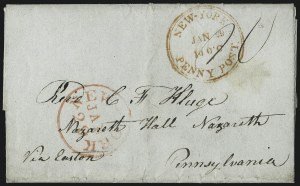 NEW-YORK
JAN
PENNY POST
Revd C F Kluge
Nazareth Hall Nazareth
Via Easton Pennsylvania